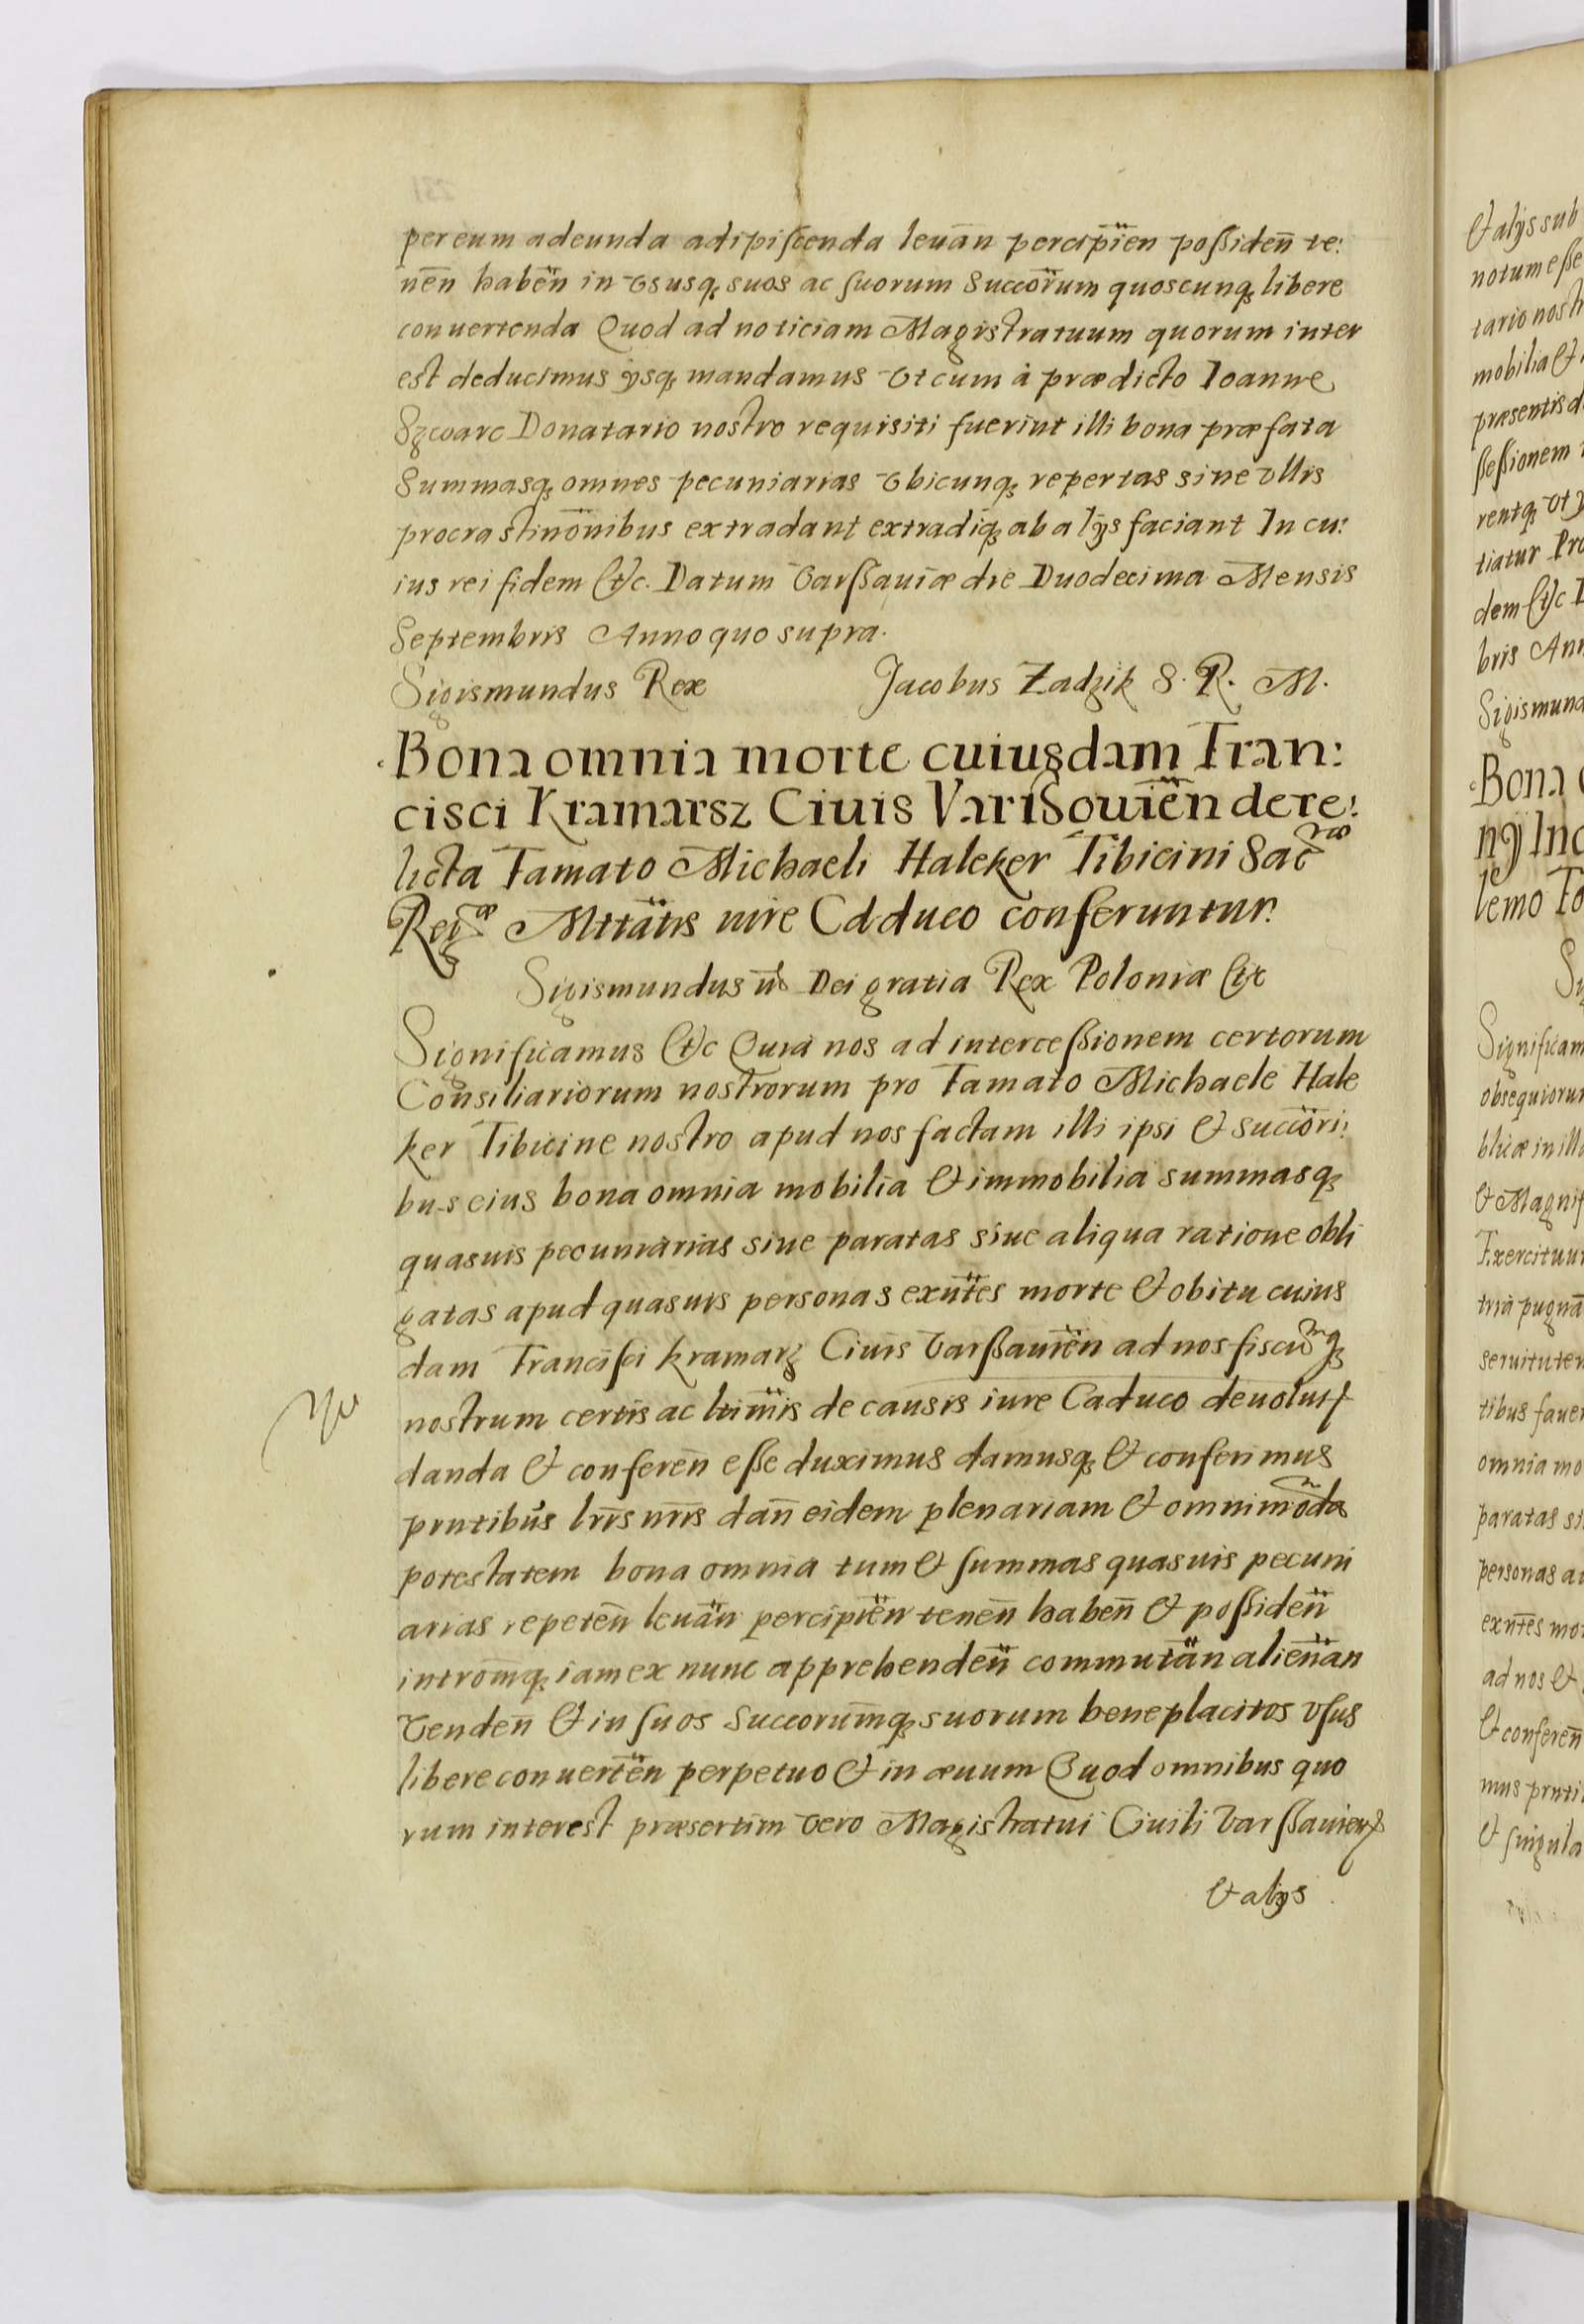 per eum adeunda adipiscenda leuan̄ percipien̈ poßiden̄ te:
nen̄ haben̈ in vsusq́ suos ac suorum Succor̈um quoscunq́ libere
conuertenda Quod ad noticiam Magistratuum quorum inter
est deducimus ijsq́ mandamus vt cum à prædicto Ioanne
Szwarc Donatario nostro requisiti fuerint illi bona præfata
Summasq́ omnes pecuniarias vbicunq́ repertas sine vllis
procrastinöníbus extradant extradiq́ ab alijs faciant In cu:
ius rei fidem &c. Datum Varßauiæ die Duodecima Mensis
Septembris Anno quo supra.
Sigismundus Rex Jacobus Zadzik S. R. M.
Bona omnia morte cuiusdam Fran:
cisci Kramarsz Ciuis Varßouien̈ dere:
licta Famato Michaeli Haleker Tibicini Sac̄ræ
Regiæ Mttätis iure Cadduco conferuntur.
Sigismundus iii Dei gratia Rex Poloniæ &c
Significamus &c Quia nos ad interceßionem certorum
Consiliariorum nostrorum pro Famato Michaele Hale
ker Tibicine nostro apud nos factam illi ipsi & succöri:
bus eius bona omnia mobilia & immobilia summasq́
quasuis pecuniarias siue paratas siue aliqua ratione obli
gatas apud quasuis personas exn̈tes morte & obitu cuius
dam Francisci Kramarz Ciuis Varßauien̈ ad nos fiscumq́
nostrum certis ac ltimïs de causis iure Caduco deuolut
danda & conferen̄ eße duximus damusq́ & conferimus
prntibus lrīs nrīs dan̄ eidem plenariam & omnimodā
potestatem bona omnia tum & summas quasuis pecuni
arias repeten̄ leuan̈ percipien̈ tenen̄ haben̄ & poßiden̈
introm̄q́ iam ex nunc apprehenden̈ commutan̈ alienan̈
Venden̄ & in suos Succorum̄q́ suorum beneplacitos vsus
libere conuerten̈ perpetuo & in æuum Quod omnibus quo
rum interest præsertim vero Magistratui Ciuili Varßauien
& alijs
& alijs sub
notum eße
tario nostr
mobilia &
præsentis d
ßeßionem
rentq́ vt
tiatur Pro
dem &c D
bris Ann
Sigismund
Bona
nij Ino
lemo Fo
Si
Significam
obsequiorum
blicæ in illo
& Magnif
Exercituum
tria pugnā
seruitutem
tibus fauer
omnia mo
paratas si
personas a
exn̄tes mo
ad nos &
& conferen̄
mus prnti
& singula